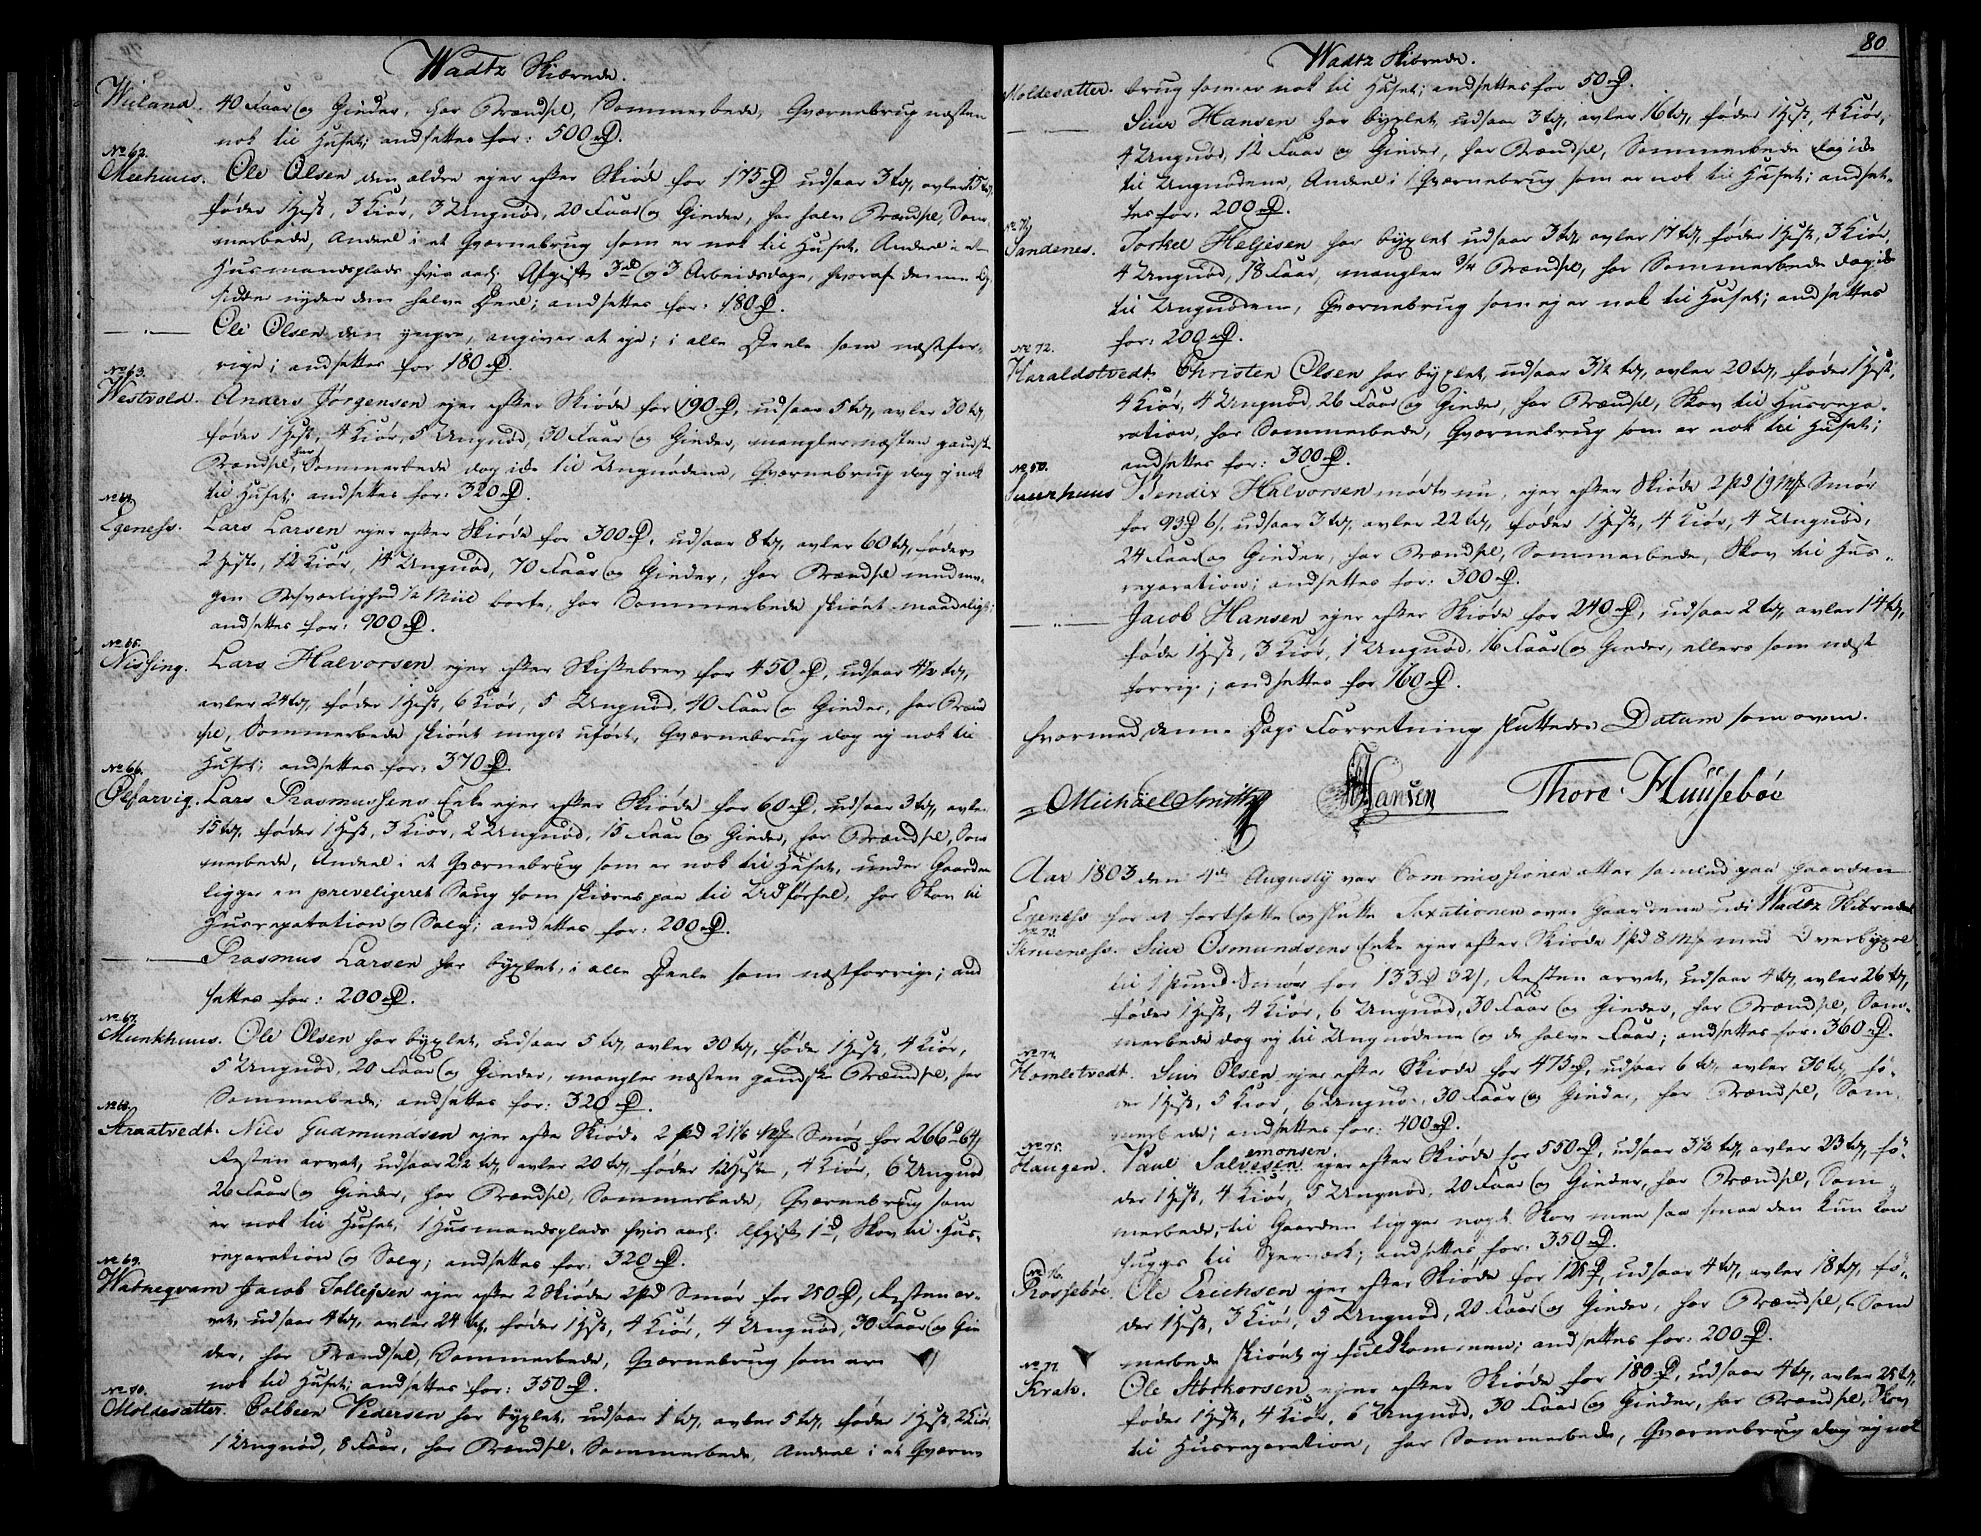 Wadtz Skibrede.
Wieland. 40 Faar og Gieder, har Brændsel, Sommerbede, Qværnebrug næsten
nok til Huset; andsettes for: 500 rD.
No 62.
Meehuus. Ole Olsen den ældre ejer efter Skiøde for 175 rD udsaar 3 td, avler 15 td,
føder 1 Hest, 3 Kiør, 3 Ungnød, 20 Faar og Gieder, har halv Brændsel, Som-
merbede, Andeel i et Qværnebrug som er nok til Huset, Andeel i en
Husmandsplads hvis aarl. Afgift 3 rd og 3 Arbeidsdage, hvoraf denne Op-
sidder nyder den halve Deel; andsettes for: 180 rD.
— " — Ole Olsen den yngre, angiver at eje; i alle Deele som næstfor-
rige; andsettes for 180 rD.
No 63.
Westvold. Anders Jørgensen ejer efter Skiøde for 190 rD, udsaar 5 td, avler 30 td,
føder 1 Hest, 4 Kiør, 5 Ungnød, 30 Faar og Gieder, mangler næsten gandske
Brændsel, har Sommerbede dog ikke til Ungnødene, Qværnebrug dog ej nok
til Huset; andsettes for: 320 rD.
No 64.
Egeness. Lars Larsen ejer efter Skiøde for 300 rD, udsaar 8 td, avler 60 td, føder
2 Heste, 12 Kiør, 14 Ungnød, 70 Faar og Gieder, har Brændsel med me-
gen Besværlighed 1/2 Miil borte, har Sommerbede skiønt maadelig;
andsettes for: 900 rD.
No 65.
Nissing. Lars Halvorsen ejer efter Skiftebrev for 450 rD, udsaar 4 1/2 td,
avler 24 td, føder 1 Hest, 6 Kiør, 5 Ungnød, 40 Faar og Gieder, har Brænd-
sel, Sommerbede skiønt meget uført, Qværnebrug dog ej nok til
Huset; andsettes for: 370 rD.
No 66.
Ølfarvig. Lars Rasmussens Enke ejer efter Skiøde for 60 rD, udsaar 3 td, avler
15 td, føder 1 Hest, 3 Kiør, 2 Ungnød, 15 Faar og Gieder, har Brændsel, Som-
merbede, Andeel i et Qværnebrug som er nok til Huset, under Gaarden
ligger en preveligeret Saug som skiæres paa til Udførsel, har Skov til
Husreparation og Salg; andsettes for: 200 rD.
— Rasmus Larsen har bygslet, i alle Deele som næstforrige; and
settes for: 200 rD.
No 67.
Munkhuus. Ole Olsen har bygslet, udsaar 5 td, avler 30 td, føder 1 Hest, 4 Kiør,
5 Ungnød, 20 Faar og Gieder, mangler næsten gandske Brændsel, har
Sommerbede; andsettes for: 320 rD.
No 68.
Straatvedt. Nils Gudmundsen ejer efter Skiøde 2 pd 21 1/6 Mk Smør for 266 rD 64 s,
Resten arvet, udsaar 2 1/2 td, avler 20 td, føder 1 Hest, 4 Kiør, 6 Ungnød
26 Faar og Gieder, har Brændsel, Sommerbede, Qværnebrug som
er nok til Huset, 1 Husmandsplads hvis aarl. Afgift 1 rd, Skov til Hus-
reparation og Salg; andsettes for: 320 rD.
No 69.
Watneqvam Jacob Tollefsen ejer efter 2 Skiøder 2 pd Smør for 250 rD, Resten ar-
vet, udsaar 4 td, avler 24 td, føder 1 Hest, 4 Kiør, 4 Ungnød, 30 Faar og Gie
der, har Brændsel, Sommerbede, Qværnebrug som er
nok til Huset; andsettes for: 350 rD.
No 70.
Moldesætter. Tolbeen Pedersen har bygslet, udsaar 1 td, avler 5 td, føder 1 Hest, 2 Kiør
1 Ungnød, 8 Faar, har Brændsel, Sommerbede, Andeel i et Qværne
80
Wadtz Skibrede.
Moldesætter. brug som er nok til Huset; andsettes for 50 rD.
— " — Siur Hansen har bygslet, udsaar 3 td, avler 16 td, føder 1 Hest, 4 Kiør,
4 Ungnød, 12 Faar og Gieder, har Brændsel, Sommerbede dog ikke
til Ungnødene, Andeel i 1 Qværnebrug som er nok til Huset; andset-
tes for: 200 rD.
No 71.
Sandenes. Torkel Heljesen har bygslet udsaar 3 td, avler 17 td, føder 1 Hest, 3 Kiør,
4 Ungnød, 18 Faar, mangler 3/4 Brændsel, har Sommerbede dog ikke
til Ungnødene, Qværnebrug som ej er nok til Huset; andsettes
for: 200 rD.
No 72.
Haraldstvedt. Christen Olsen har bygslet, udsaar 3 1/2 td, avler 20 td, føder 1 Hest,
4 Kiør, 4 Ungnød, 26 Faar og Gieder, har Brændsel, Skov til Husrepa-
ration, har Sommerbede, Qværnebrug som er nok til Huset;
andsettes for: 300 rD.
No 50.
Suurhuus Bendix Halvorsen mødte nu, ejer efter Skiøde 2 pd 19 Mk Smør
for 93 D 6 s, udsaar 3 td, avler 22 td, føder 1 Hest, 4 Kiør, 4 Ungnød,
24 Faar og Gieder, har Brændsel, Sommerbede, Skov til Hus-
reparation; andsettes for: 300 rD.
— " — Jacob Hansen ejer efter Skiøde for 240 rD, udsaar 2 td, avler 14 td,
føder 1 Hest, 3 Kiør, 1 Ungnød, 16 Faar og Gieder, ellers som næst
forrige; andsettes for 160 rD.
hvormed denne Dags Forretning sluttedes Datum som oven.
Michael Smith Hansen Thore Huusebøe
Aar 1803 den 4de Augusty var Commissionen atter samled paa Gaarden
Egeness for at fortsætte og slutte Taxationen over Gaardene udi Wadtz Skibrede.
No 73.
Skrueness. Siur Osmundsens Enke ejer efter Skiøde 1 pd 8 Mk med Overbygsel
til 1 pund Smør for 133 D 32 s, Resten arvet, udsaar 4 td, avler 26 td,
føder 1 Hest, 4 Kiør, 6 Ungnød, 30 Faar og Gieder, har Brændsel, Som-
merbede dog ej til Ungnødene og de halve Faar; andsettes for: 360 rD.
No 74.
Homletvedt. Siur Olsen ejer efter Skiøde for 475 rD, udsaar 6 td, avler 30 td, fø-
der 1 Hest, 5 Kiør, 6 Ungnød, 30 Faar og Gieder, har Brændsel, Som-
merbede; andsettes for: 400 rD.
No 75.
Haugen. Paul Salvesen emonsen. ejer efter Skiøde for 550 rD, udsaar 3 1/2 td, avler 23 td, fø-
der 1 Hest, 4 Kiør, 5 Ungnød, 20 Faar og Gieder, har Brændsel, Som-
merbede, til Gaarden ligger noget Skov men saa smaa den kun kan
hugges til Sperværk; andsettes for: 350 rD.
No 76.
Rossebøe. Ole Erichsen ejer efter Skiøde for 125 rD, udsaar 4 td, avler 18 td, fø-
der 1 Hest, 3 Kiør, 5 Ungnød, 20 Faar og Gieder, har Brændsel, Som
merbede skiønt ej fuldkommen; andsettes for: 200 rD.
No 77.
Krak. Ole Storkorsen ejer efter Skiøde for 180 rD, udsaar 4 td, avler 25 td,
føder 1 Hest, 4 Kiør, 6 Ungnød, 30 Faar og Gieder, har Brændsel, Skov
til Husreparation, har Sommerbede, Qværnebrug dog ej nok